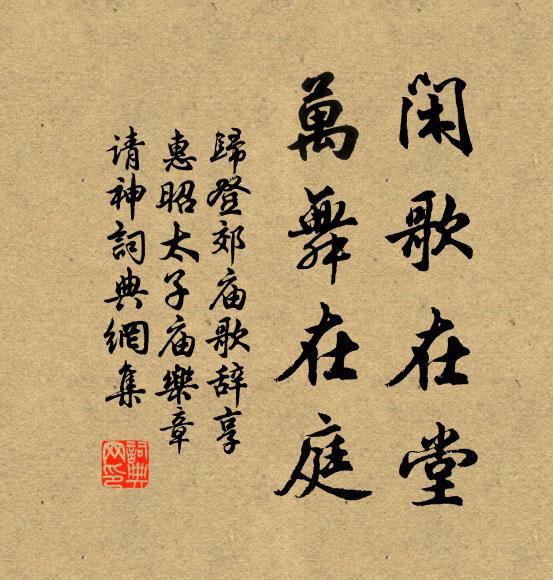 闲歌在堂
萬舞在庭
歸登郊庙歌辞享
惠昭太子庙樂章
请神詞典網集
詞典
网印